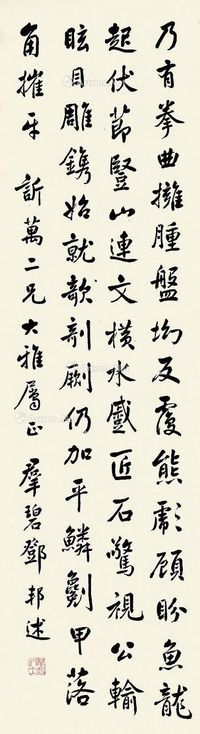 乃有拳曲擁腫盤坳反覆熊彪顧盼魚龍
起伏節豎山連文橫水蹙匠石驚視公輸
眩目雕鐫始就剞劂仍加平鱗剷甲落
角摧牙 訢萬二兄大雅屬正 羣碧鄧邦述